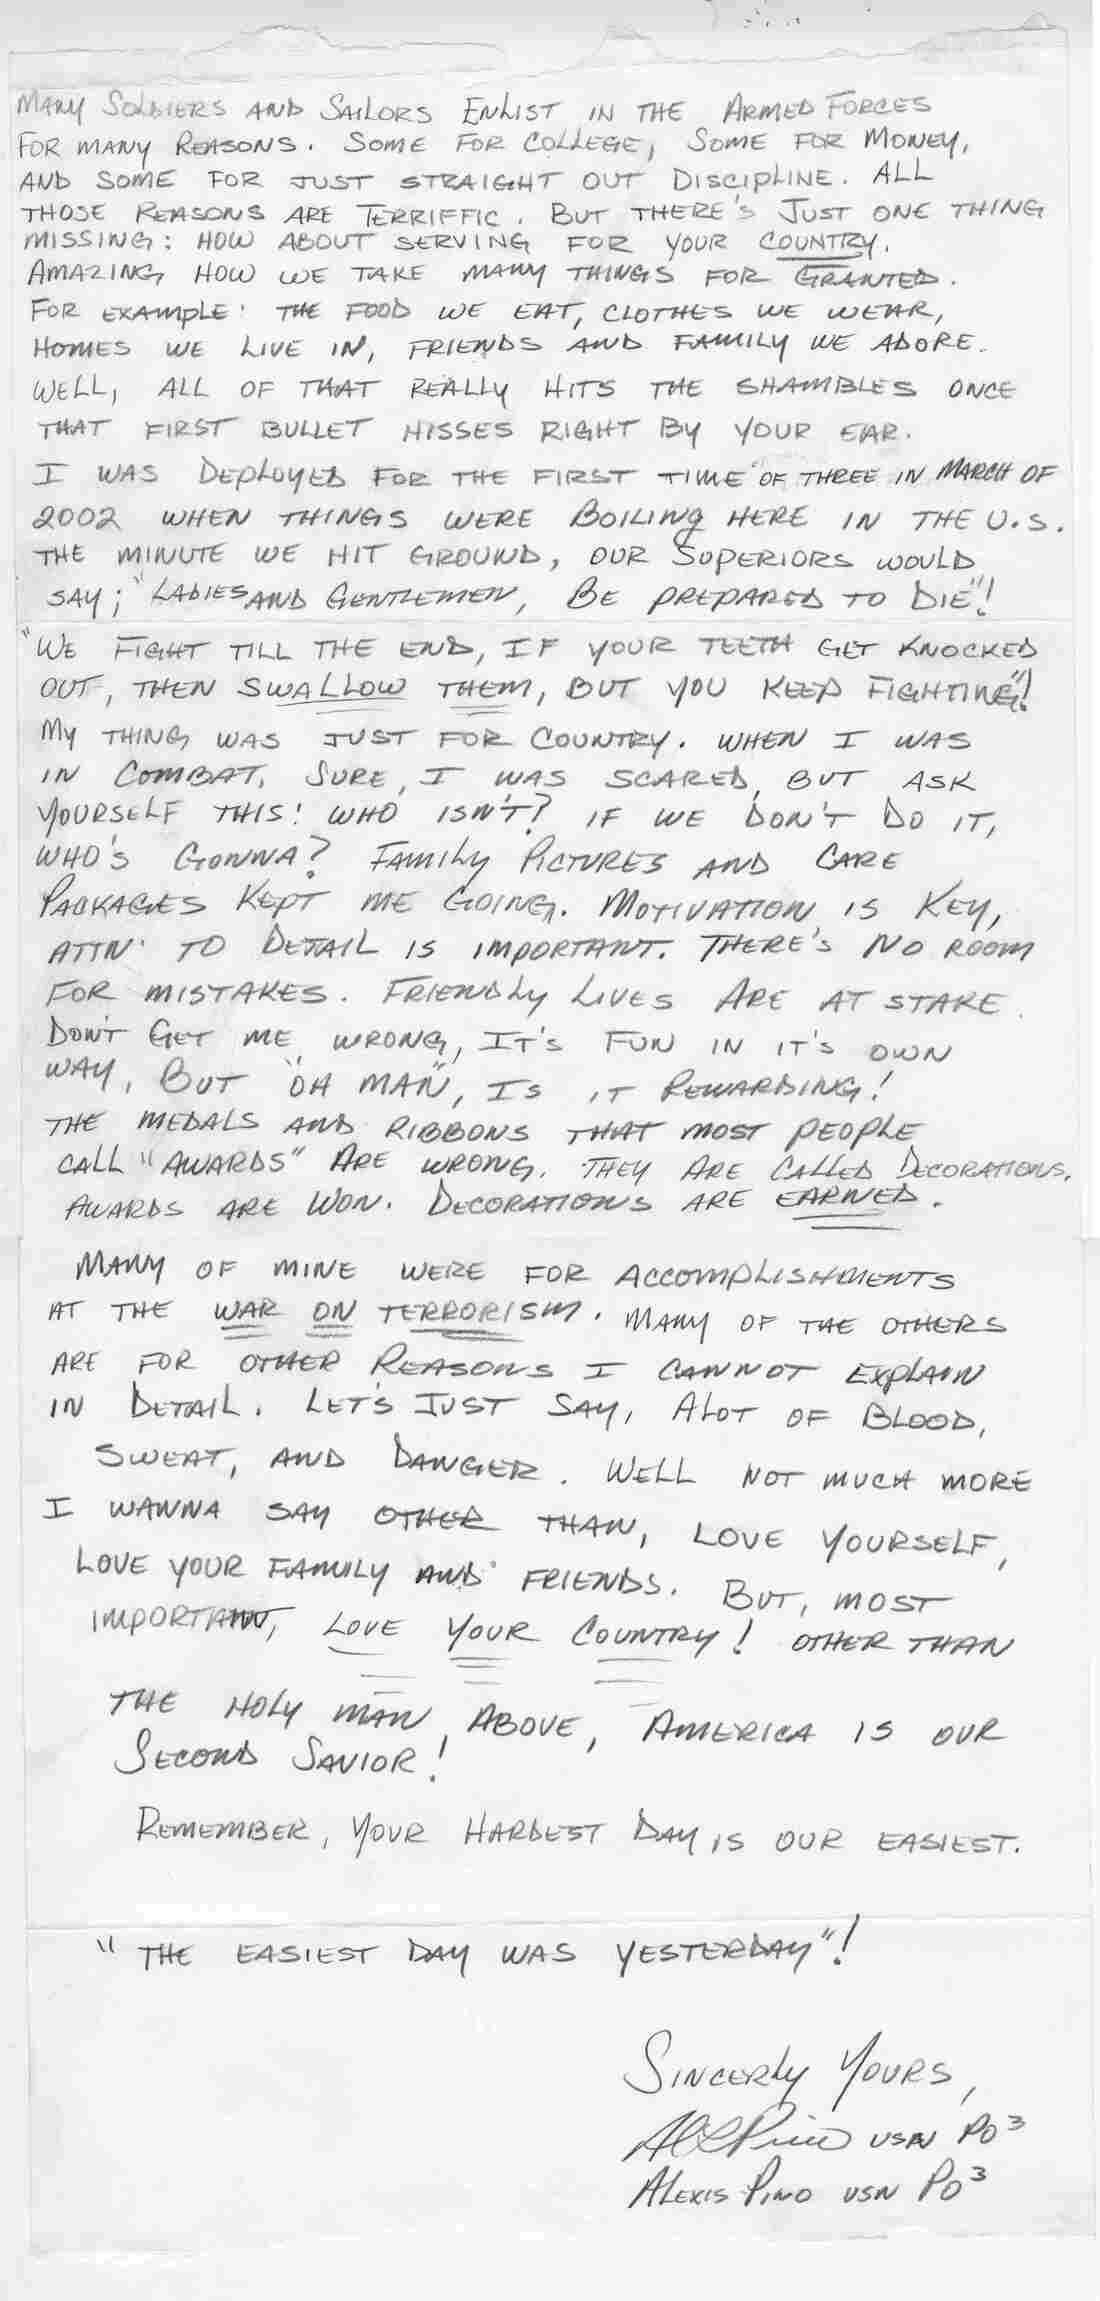 Many Soldiers and Sailors Enlist in the Armed Forces
For many Reasons. Some for College, Some for Money,
and some for just straight out Discipline. All
those Reasons are Terriffic. But there's Just one thing
missing: How about serving for your Country.
Amazing how we take many things for Granted.
For example: the food we eat, clothes we wear,
Homes we live in, friends and family we adore.
Well, all of that really hits the shambles once
that first bullet hisses right by your ear.
I was Deployed for the first time of three in March of
2002 when things were Boiling here in the U.S.
The minute we hit ground, our Superiors would
say; "Ladies and Gentlemen, Be prepared to Die"!
"We Fight till the end, if your teeth get knocked
out, then swallow them, but you keep fighting"!
My thing was just for Country. When I was
in Combat, Sure, I was scared, but ask
yourself this: Who isn't? If we don't do it,
who's Gonna? Family Pictures and Care
Packages Kept me Going. Motivation is Key,
attn. to Detail is important. There's No room
for mistakes. Friendly Lives Are at stake.
Don't Get me wrong, It's fun in it's own
way, But "oh man", Is it Rewarding!
The medals and ribbons that most people
call "Awards" Are wrong. They Are Called Decorations.
Awards are Won. Decorations are earned.
Many of mine were for accomplishments
at the war on terrorism. Many of the others
are for other Reasons I cannot explain
in Detail. Let's Just say, Alot of Blood,
sweat, and Danger. Well not much more
I wanna say other than, love yourself,
love your family and friends. But, most
important, Love Your Country! Other than
the Holy man above, America is our
Second Savior!
Remember, Your Hardest Day is our easiest.
"The easiest day was yesterday"!
Sincerly Yours,
USN PO3
Alexis Pino USN PO3